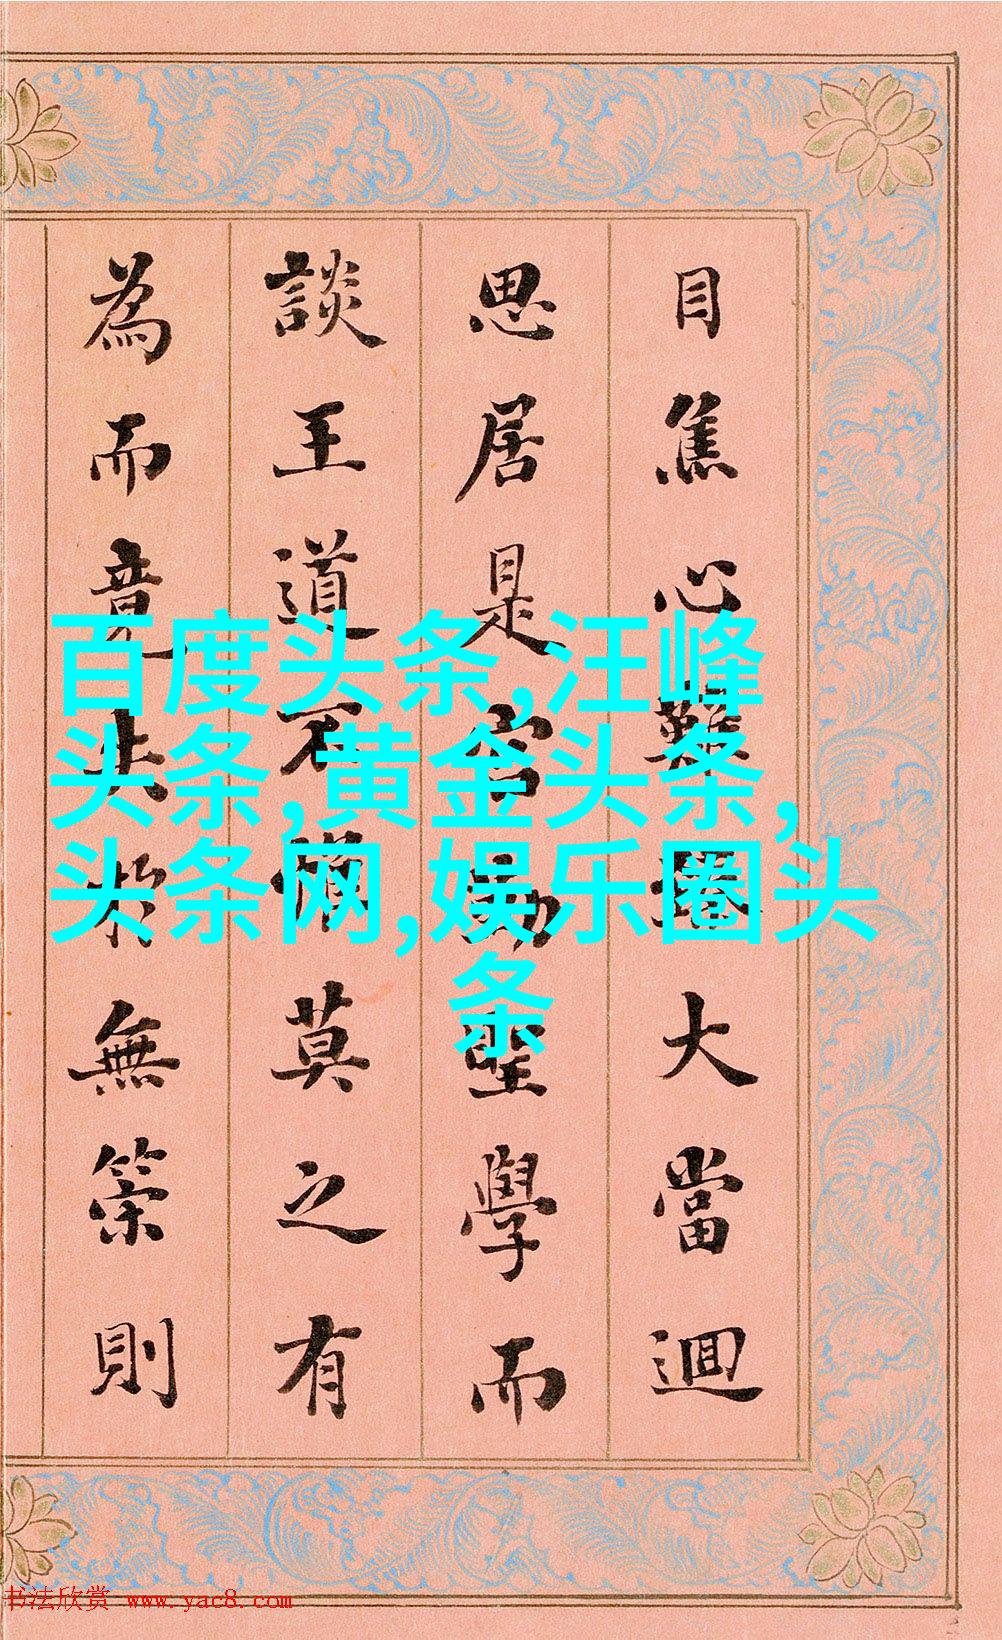 目焦心難大當迴
思居是聖學而
談王道不莫之有
為而竟止於無策則
百度头条,汪峰
头条,黄金头条,
头条网,娱乐圈头
条
书法欣赏 www.yac8.com